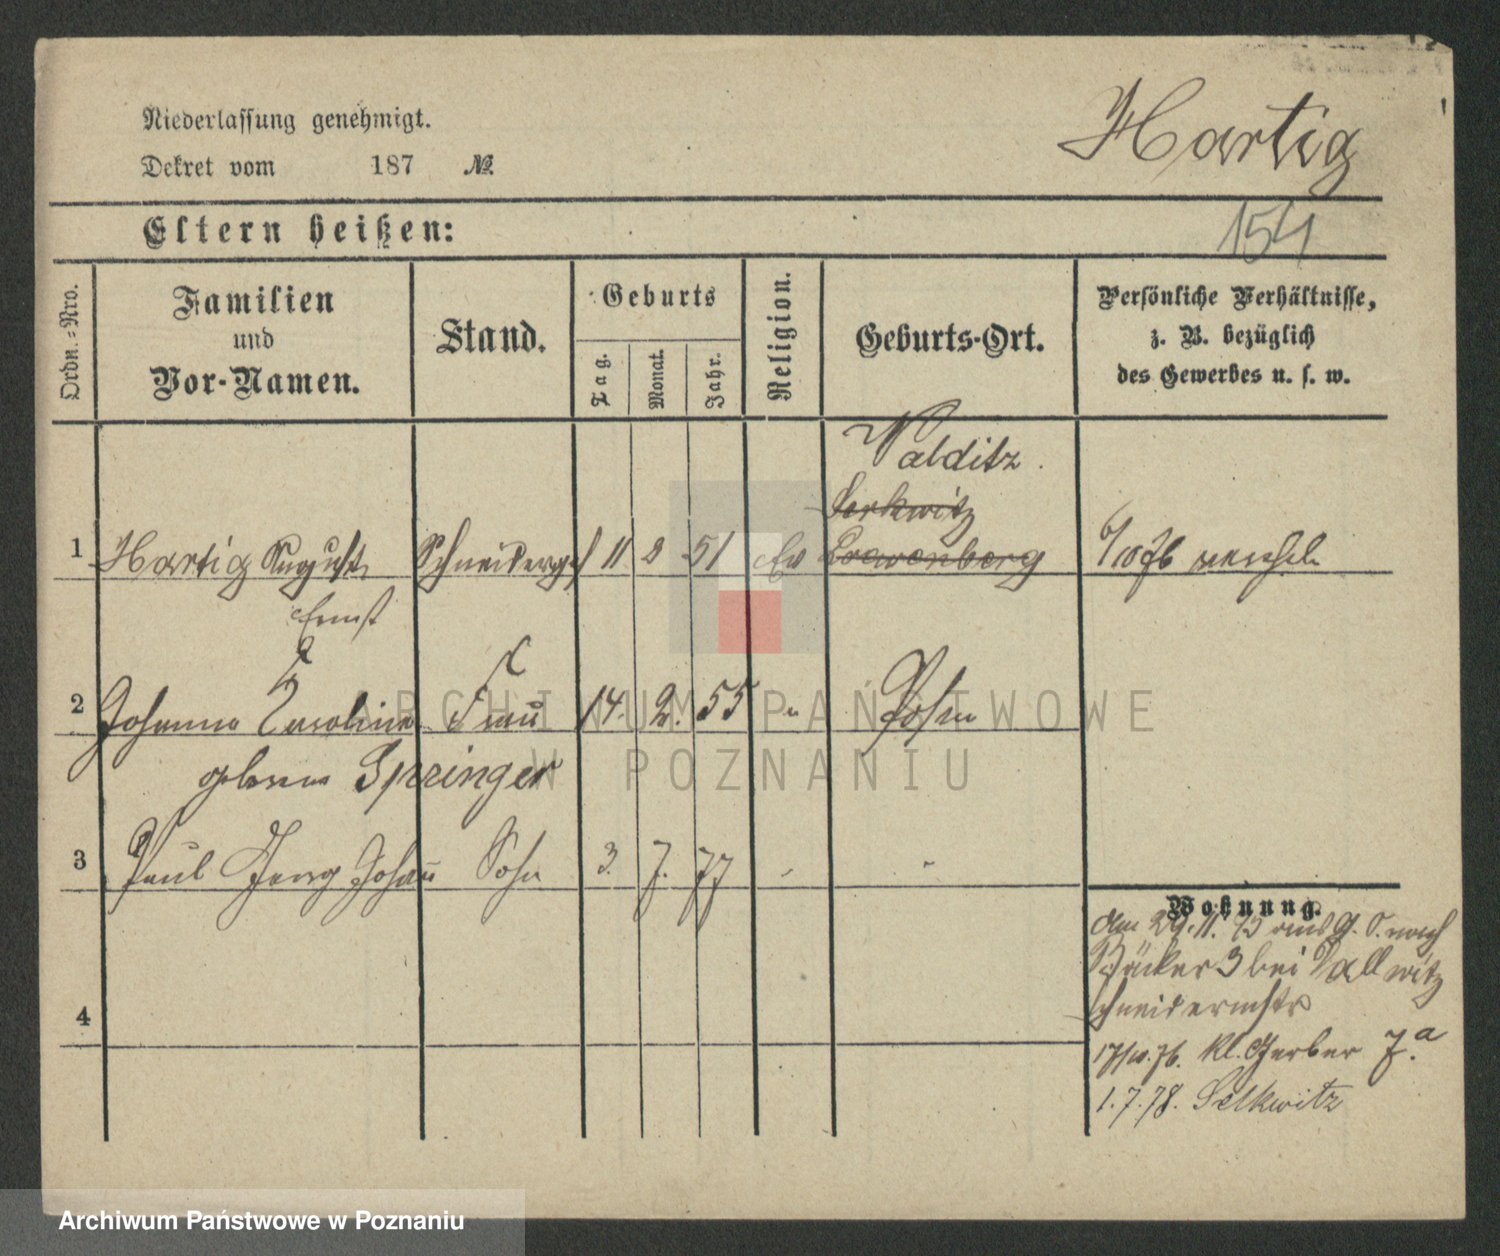 Niederlassung genehmigt.
Hartig
Dekret vom 187 №
Eltern heißen:
154
Ordn.-Nro.
Familien
und
Vor-Namen.
Stand.
Geburts
Tag.
Monat.
Jahr.
Religion.
Geburts-Ort.
Persönliche Verhältnisse,
z. B. bezüglich
des Gewerbes u. s. w.
Walditz
1 Hartig August Schneiderges 11 2 51 Ev Loewenberg 6/10 76
Ernst
2 Johanna Caroline Frau 14. 2. 55 " Posen
geborene Springer
3 Paul Georg Johann Sohn 3. 7. 77 " "
Wohnung.
am 29. 11. 75 nach
Bäcker 3 bei Dallwitz
Schneidermstr
4
17/10. 76. kl. Gerber 7.a
1. 7. 78. Selkwitz
ARCHIWUM PAŃSTWOWE
W POZNANIU
Archiwum Państwowe w Poznaniu